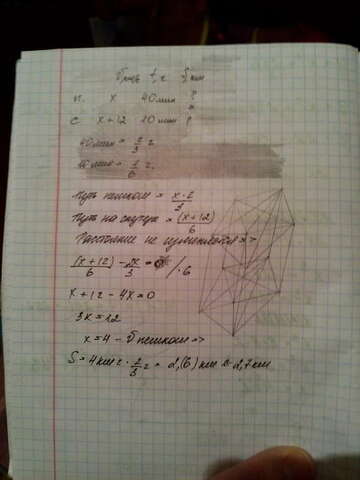 v, км/ч t, ч S, км
п. x 40 мин ?
с. x+12 10 мин ?
40 мин = 2/3 ч
10 мин = 1/6 ч.
Путь пешком = x·2/3
Путь на скутере = (x+12)/6
Расстояние не изменяется =>
(x+12)/6 - 2x/3 = 0 / ·6
x + 12 - 4x = 0
3x = 12
x = 4 - v пешком =>
S = 4 км/ч · 2/3 ч = 2,(6) км ≈ 2,7 км